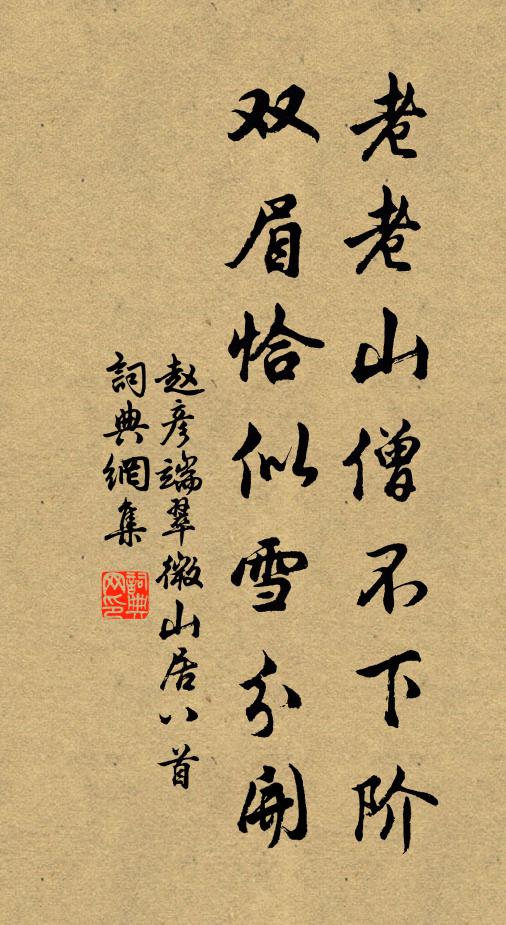 老老山僧不下阶
双眉恰似雪分开
赵彦端翠微山居八首
詞典網集
詞典网印